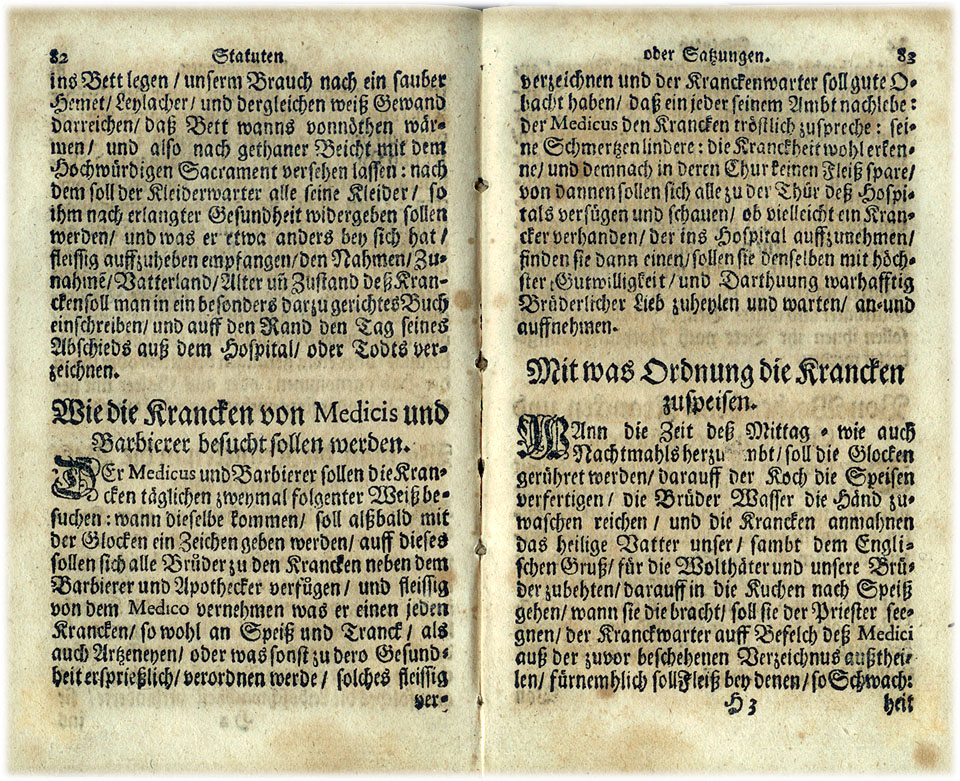 82 Statuten
ins Bett legen / unserm Brauch nach ein sauber
Hemet / Leylacher / und dergleichen weiß Gewand
darreichen / daß Bett wanns vonnöthen wär-
men / und also nach gethaner Beicht mit dem
Hochwürdigen Sacrament versehen lassen : nach
dem soll der Kleiderwarter alle seine Kleider / so
ihm nach erlangter Gesundheit widergeben sollen
werden / und was er etwa anders bey sich hat /
fleissig auffzuheben empfangen / den Nahmen / Zu-
nahmē / Vatterland / Alter uñ Zustand deß Kran-
cken soll man in ein besonders darzu gerichtes Buch
einschreiben / und auff den Rand den Tag seines
Abschieds auß dem Hospital / oder Todts ver-
zeichnen.
Wie die Krancken von Medicis und
Barbierer besucht sollen werden.
DEr Medicus und Barbierer sollen die Kran-
cken täglichen zweymal folgenter Weiß be-
suchen : wann dieselbe kommen / soll alßbald mit
der Glocken ein Zeichen geben werden / auff dieses
sollen sich alle Brüder zu den Krancken neben dem
Barbierer und Apothecker verfügen / und fleissig
von dem Medico vernehmen was er einen jeden
Krancken / so wohl an Speiß und Tranck / als
auch Artzeneyen / oder was sonst zu dero Gesund-
heit ersprießlich / verordnen werde / solches fleissig
ver-
oder Satzungen. 83
verzeichnen und der Kranckenwarter soll gute O-
bacht haben / daß ein jeder seinem Ambt nachlebe :
der Medicus den Krancken tröstlich zuspreche : sei-
ne Schmertzen lindere : die Kranckheit wohl erken-
ne / und demnach in deren Chur keinen Fleiß spare /
von dannen sollen sich alle zu der Thür deß Hospi-
tals verfügen und schauen / ob vielleicht ein Kran-
cker verhanden / der ins Hospital auffzunehmen /
finden sie dann einen / sollen sie denselben mit höch-
ster Gutwilligkeit / und Darthuung warhafftig
Brüderlicher Lieb zuheylen und warten / an-und
auffnehmen.
Mit was Ordnung die Krancken
zuspeisen.
WAnn die Zeit deß Mittag - wie auch
Nachtmahls herzu mbt / soll die Glocken
gerühret werden / darauff der Koch die Speisen
verfertigen / die Brüder Wasser die Händ zu-
waschen reichen / und die Krancken anmahnen
das heilige Vatter unser / sambt dem Engli-
schen Gruß / für die Wolthäter und unsere Brü-
der zubehten / darauff in die Kuchen nach Speiß
gehen / wann sie die bracht / soll sie der Priester see-
gnen / der Kranckwarter auff Befelch deß Medici
auß der zuvor beschehenen Verzeichnus außthei-
len / fürnemhlich soll Fleiß bey denen / so Schwach:
H 3 heit